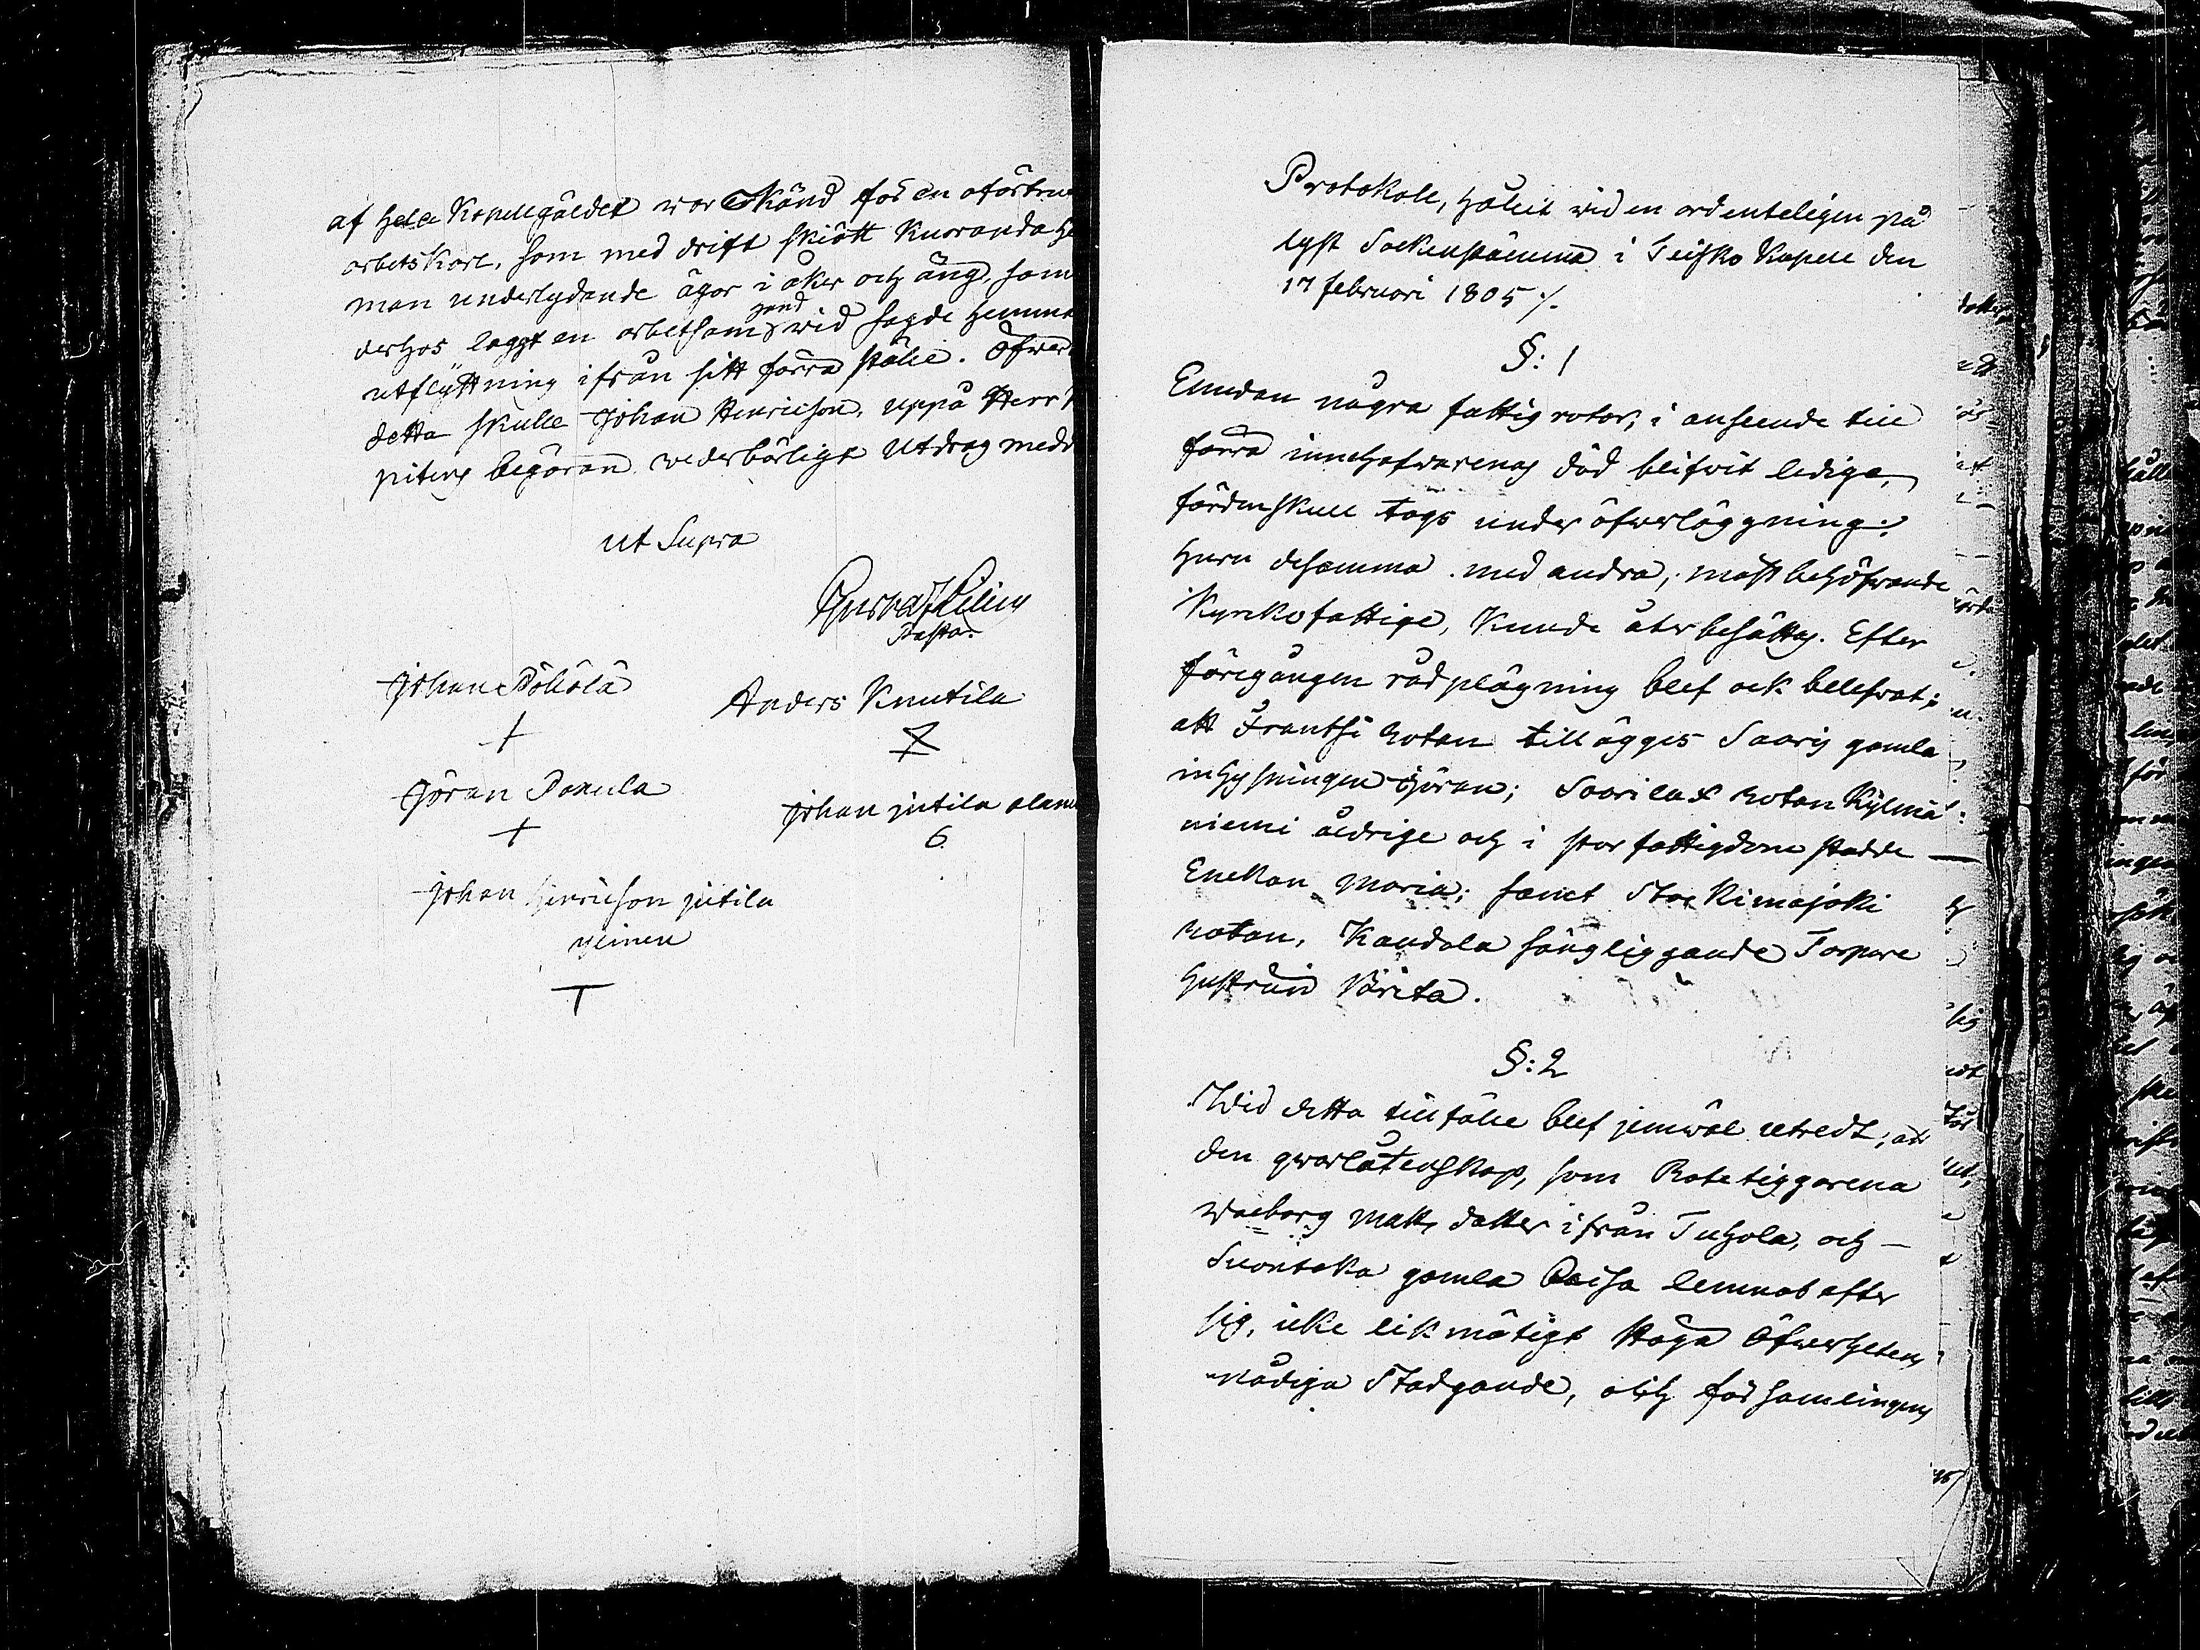 af hela Kapellgäldet war Känd för en oförtru
arbetskarl, som med drift skiött Kuoranda He
man underlydande ägor i åker och äng, som
derhos laggt en arbetsam hand wid sagde Hemma
utflyttning ifrån sitt förra ställe. Öfwer
detta skulle Johan Henricson, uppå Herr
pitens begäran wederbörligt Utdrag medd
ut Supra
Gustaf
Pastor
Johan Pöhölä
+
Anders Knutila
Göran Panula
+
Johan jutila alane
6
Johan Hinricson jutila
yleinen
T
Protokoll, hållit wid en ordenteligen på
lyst Sockenstämma i Teisko Kapell den
17 februari 1805 ./.
§: 1
Emedan några fattig rotar, i anseende till
förra innehafwarenas död blifwit lediga,
fördenskull togs under öfwerläggning:
huru desamma med andra, mäst behöfwande
Kyrkofattige, Kunde återbesättas. Efter
föregången rådplägning blef ock belefwat;
att Frantsi Rotan tillägges Saaris gamla
inhysningen Göran; Saarilax Rotan Kylmä-
niemi åldrige och i stor fattigdom stadde
Enekan Maria; samt Stockimajoki
Rotan, Kaudala sängliggande Torpare
hustrun Wärita.
§: 2
Wid detta tillfälle blef jemwäl utredt; att
den qwarlåtenskap, som Rotetiggarena
Walborg Matts dotter ifrån Tuhola, och
Suontaka gamla Caisa lemnat efter
sig, icke likmätigt Höga Öfwerhetens
nådiga Stadgande, och församlingens